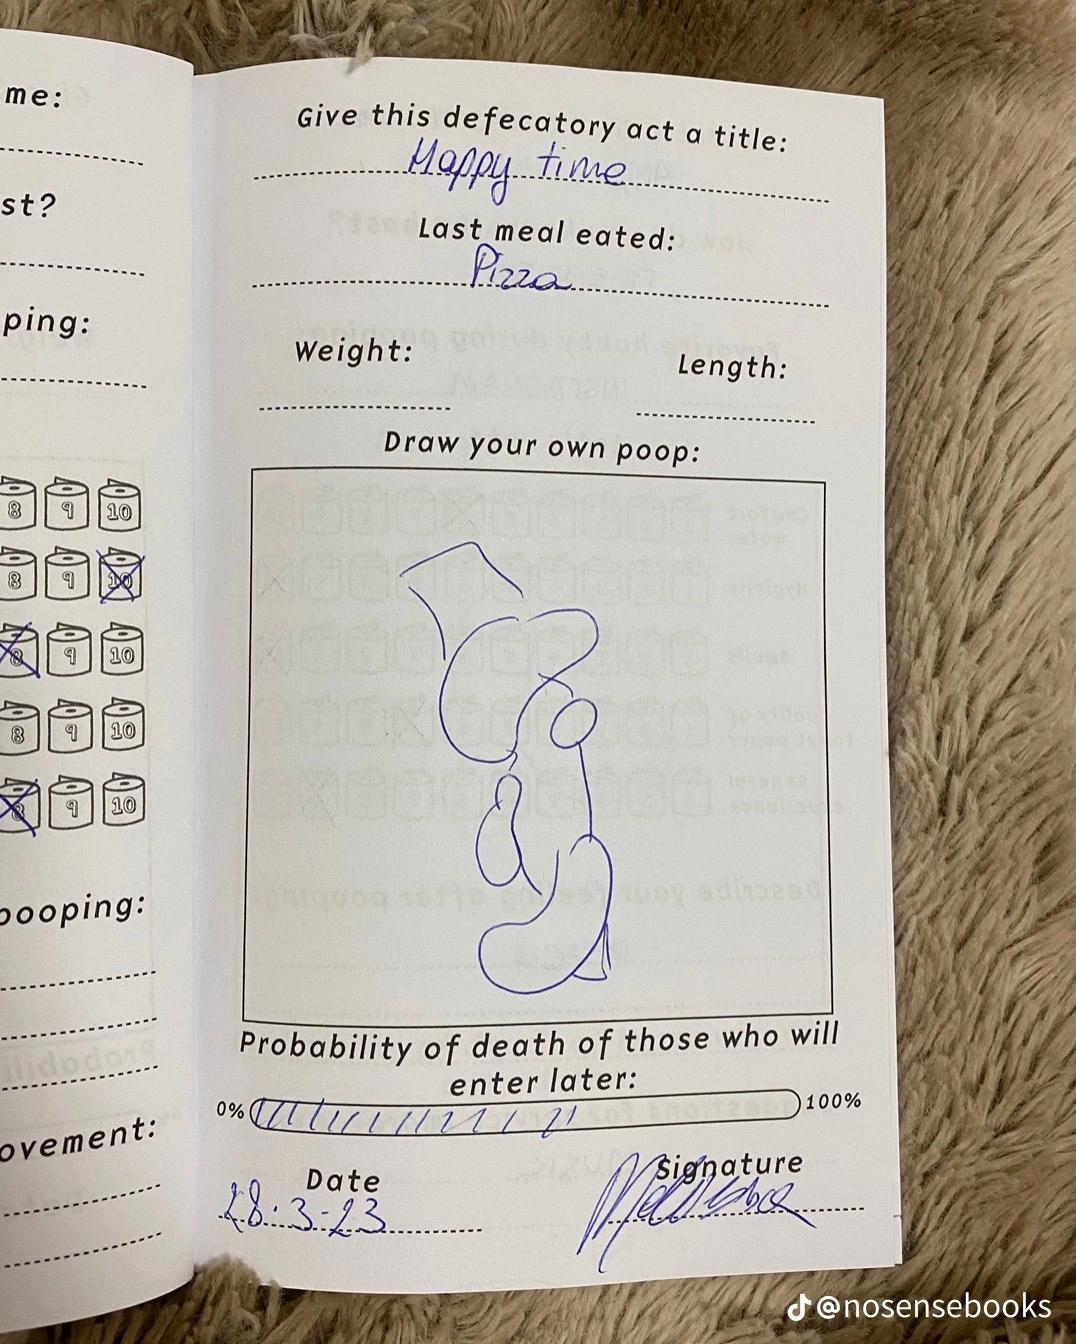 me:
st?
ping:
8 9 10
8 9 10
8 9 10
8 9 10
8 9 10
pooping:
ovement:
Give this defecatory act a title:
Happy time
Last meal eated:
Pizza
Weight:
Length:
Draw your own poop:
Probability of death of those who will
enter later:
0% 100%
Date
Signature
28.3-23
@nosensebooks